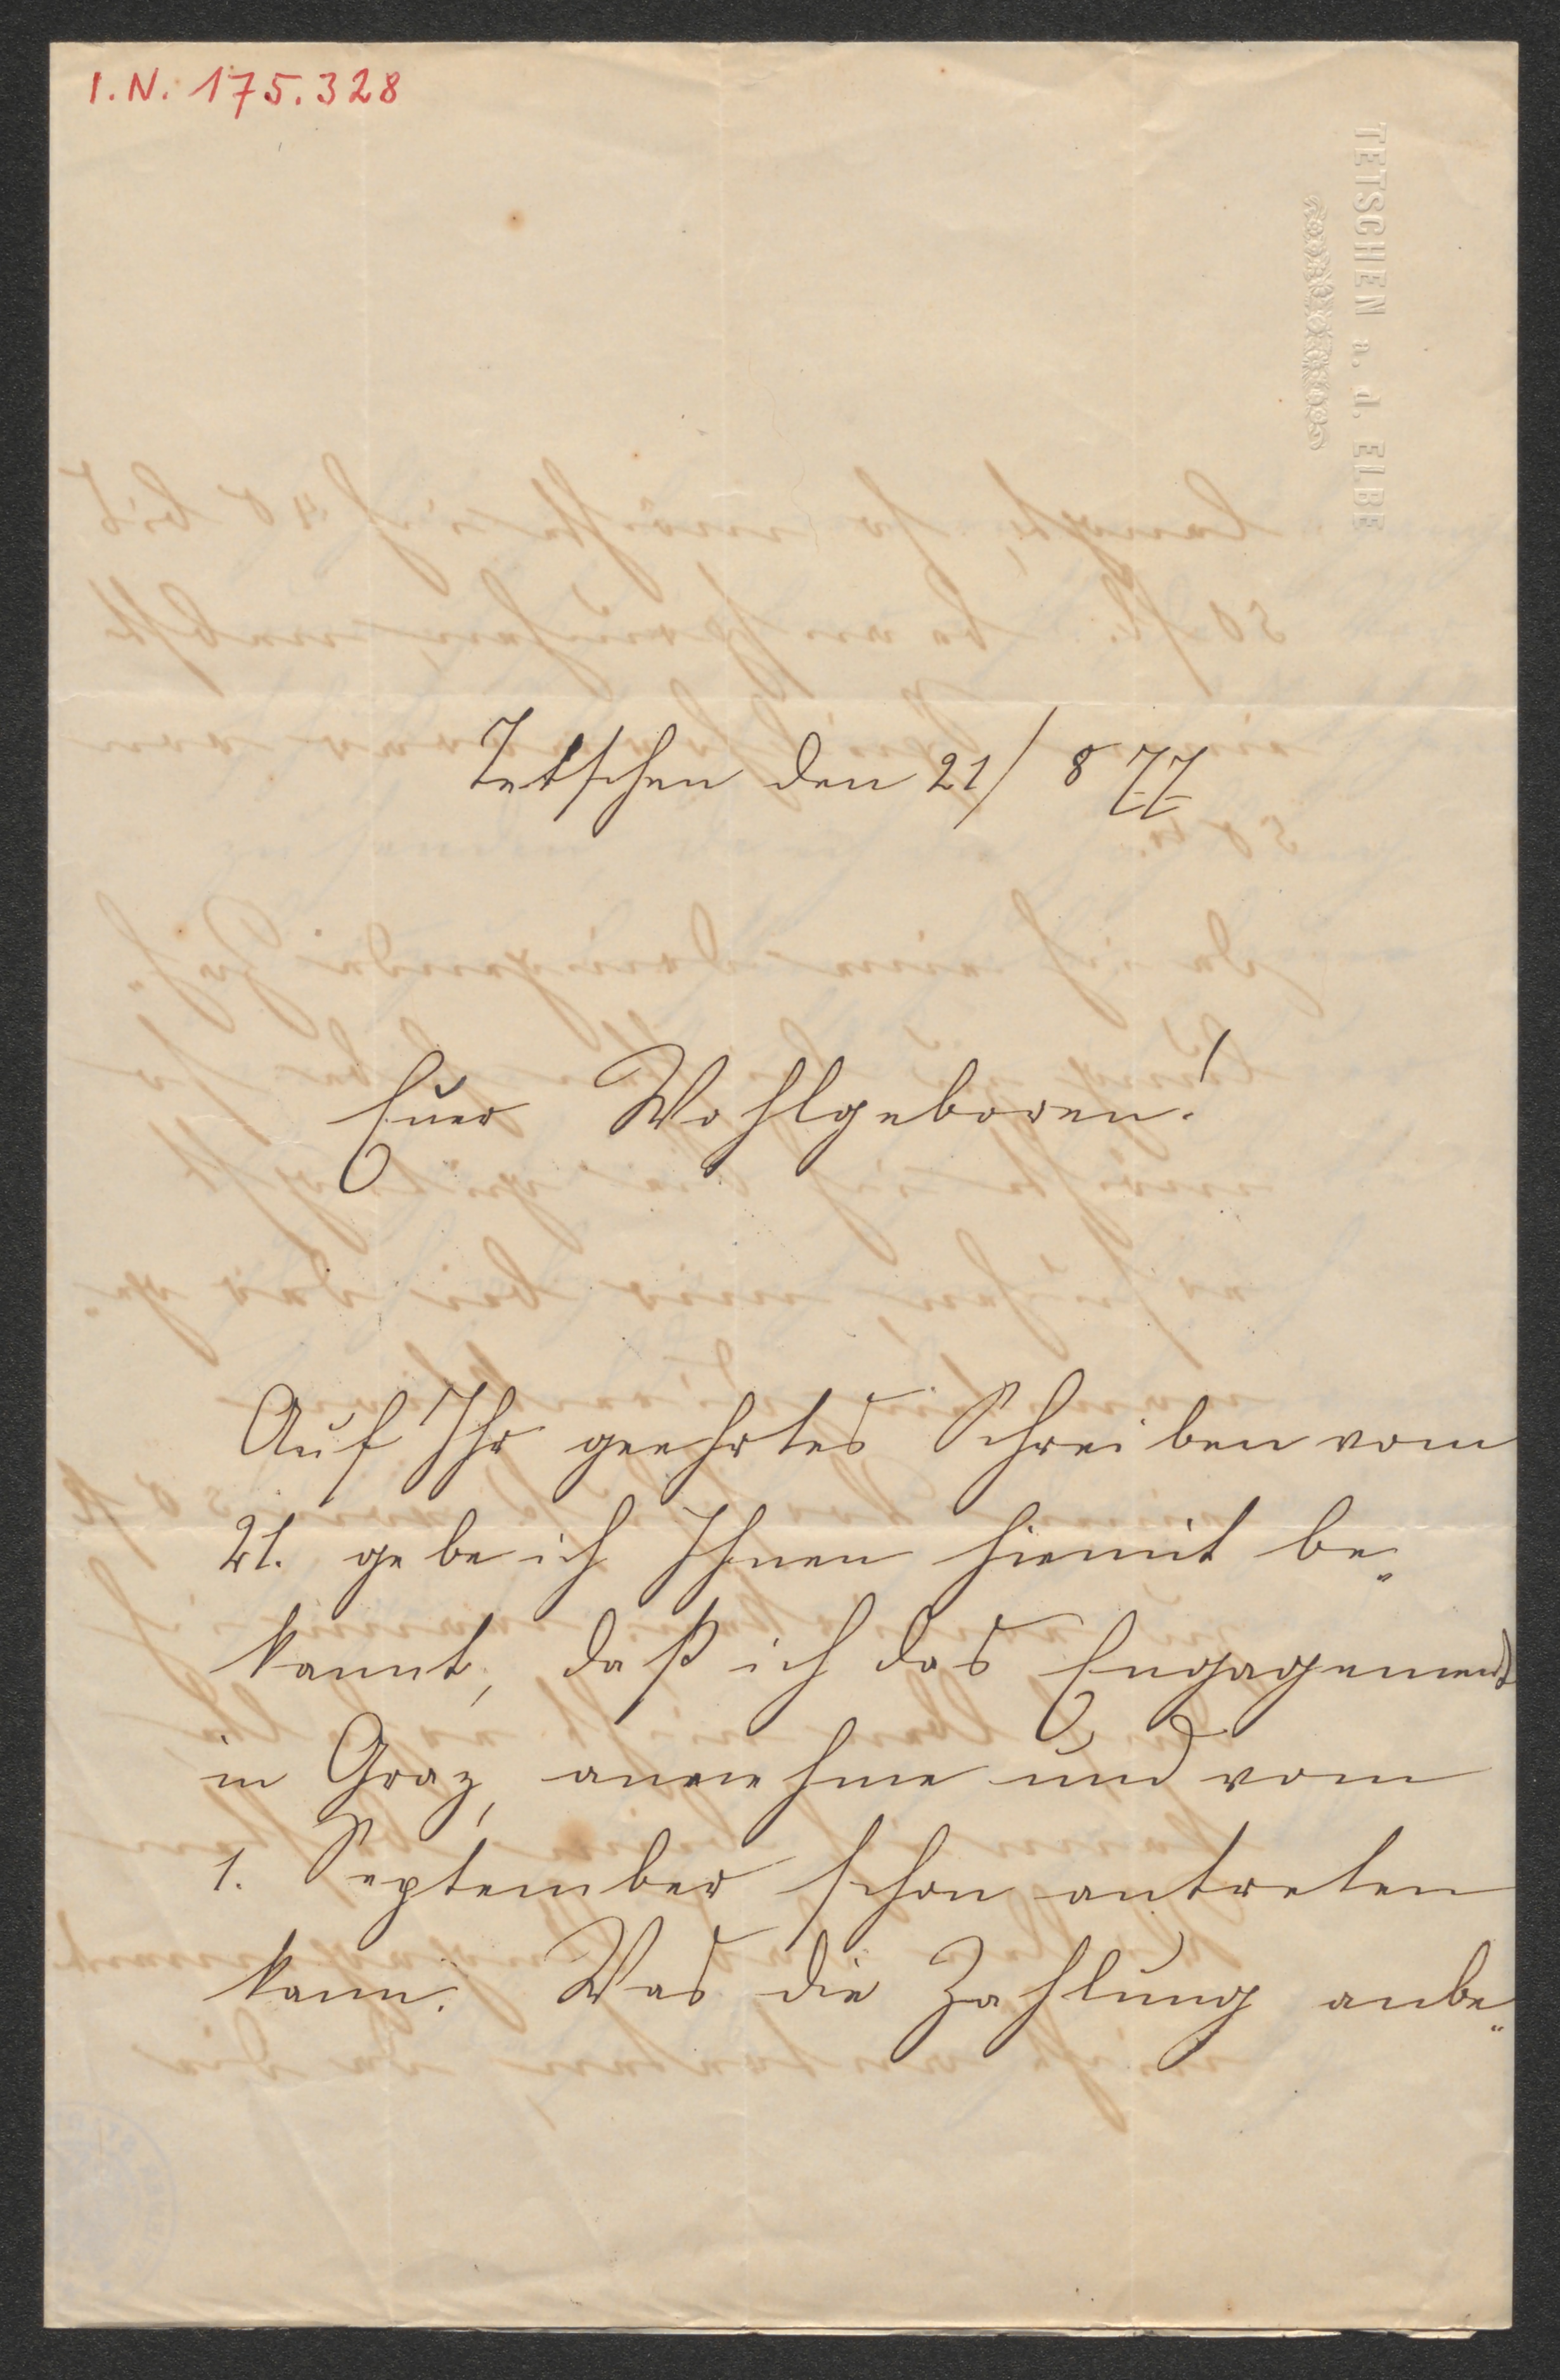 I.N. 175.328
TETSCHEN a. d. ELBE
Tetschen den 21/8 77
Euer Wohlgeboren!
Auf Ihr geehrtes Schreiben vom
21. gebe ich Ihnen hiemit be„
kannt, daß ich das Engagement
in Graz, annehme und vom
1. September schon antreten
kann. Was die Zahlung anbe„